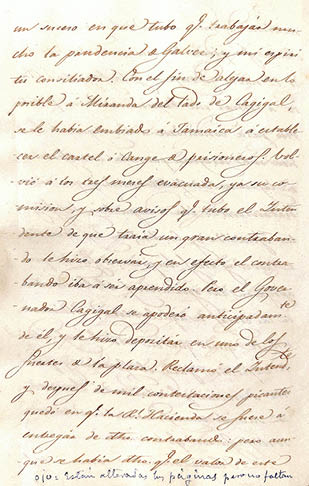 un suceso en que tubo qᵉ. trabajar mu-
cho la prudencia de Galvez; y mi espiri-
tu conciliador. Con el fin de alejar en lo
posible á Miranda del lado de Cagigal,
se le habia embiado á Jamaica á estable
cer el cartel ó Cange de prisioneros. Vol-
vió á los tres meses evacuada, ya su co-
mision, y sobre avisos qᵉ. tubo el Inten-
dente de que traia un gran contraban-
do le hizo observar, y en efecto el contra-
bando iba á ser aprendido. Pero el Gover-
nador Cagigal se apoderó anticipadamᵗᵉ
de él, y le hizo depositar en uno de los
fuertes de la plaza. Reclamó el Intendᵗᵉ.
y despues de mil contestaciones picantes
quedó en qᵉ. la Rˡ. Hacienda se fuese á
entregar de dho. contrabando: pero aun-
que se habia dho. qᵉ. el valor de este
ojo: Están alteradas las páginas pero no faltan